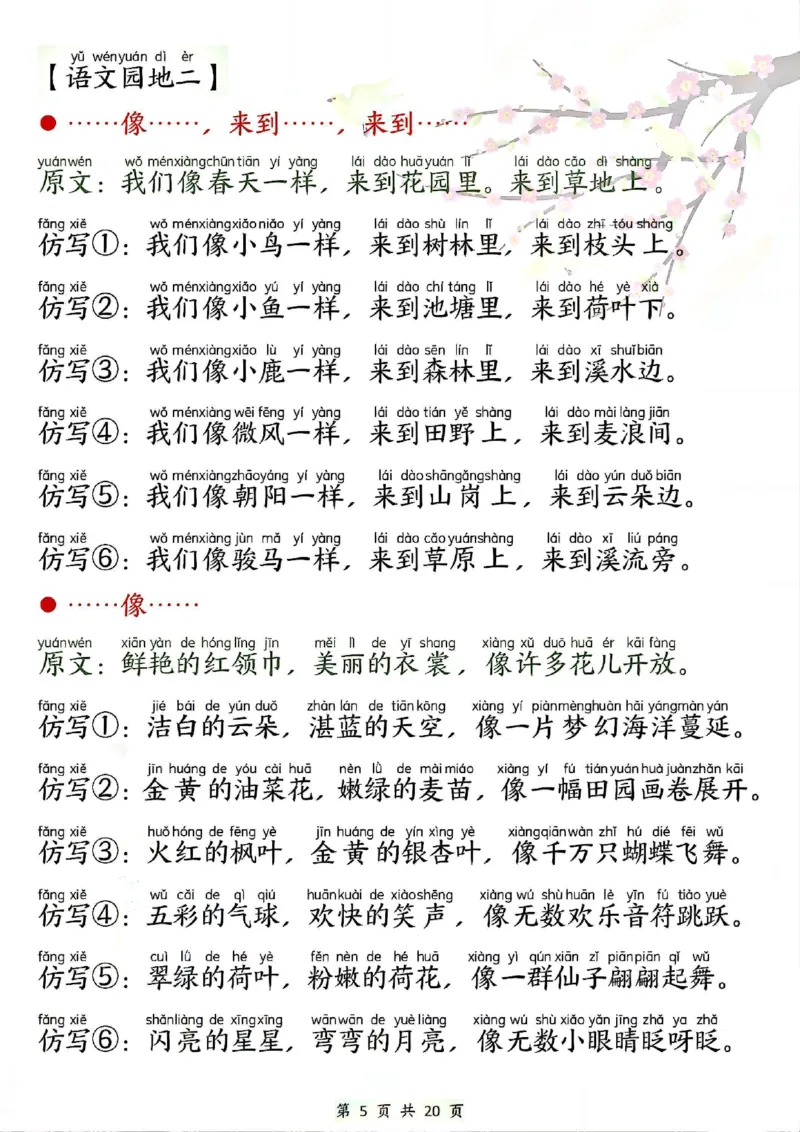 yǔ wényuán dì èr
【语文园地二】
● ……像……，来到……，来到……
yuánwén wǒ ménxiàngchūntiān yí yàng lái dào huāyuán lǐ lái dào cǎo dì shàng
原文：我们像春天一样，来到花园里。来到草地上。
fǎng xiě wǒ ménxiàngxiǎoniǎo yí yàng lái dào shù lín lǐ lái dào zhī tóu shàng
仿写①：我们像小鸟一样，来到树林里，来到枝头上。
fǎng xiě wǒ ménxiàngxiǎo yú yí yàng lái dào chí táng lǐ lái dào hé yè xià
仿写②：我们像小鱼一样，来到池塘里，来到荷叶下。
fǎng xiě wǒ ménxiàngxiǎo lù yí yàng lái dào sēn lín lǐ lái dào xī shuǐbiān
仿写③：我们像小鹿一样，来到森林里，来到溪水边。
fǎng xiě wǒ ménxiàng wēi fēng yí yàng lái dào tián yě shàng lái dào mài làng jiān
仿写④：我们像微风一样，来到田野上，来到麦浪间。
fǎng xiě wǒ ménxiàngzhāoyáng yí yàng lái dào shāngǎngshàng lái dào yún duǒ biān
仿写⑤：我们像朝阳一样，来到山岗上，来到云朵边。
fǎng xiě wǒ ménxiàng jùn mǎ yí yàng lái dào cǎo yuánshàng lái dào xī liú páng
仿写⑥：我们像骏马一样，来到草原上，来到溪流旁。
● ……像……
yuánwén xiān yàn de hóng lǐng jīn měi lì de yī shang xiàng xǔ duō huā ér kāi fàng
原文：鲜艳的红领巾，美丽的衣裳，像许多花儿开放。
fǎng xiě jié bái de yún duǒ zhàn lán de tiān kōng xiàng yí piànmènghuàn hǎi yángmàn yán
仿写①：洁白的云朵，湛蓝的天空，像一片梦幻海洋蔓延。
fǎng xiě jīn huáng de yóu cài huā nèn lǜ de mài miáo xiàng yí fú tiányuán huà juànzhǎn kāi
仿写②：金黄的油菜花，嫩绿的麦苗，像一幅田园画卷展开。
fǎng xiě huǒ hóng de fēng yè jīn huáng de yín xìng yè xiàngqiānwàn zhī hú dié fēi wǔ
仿写③：火红的枫叶，金黄的银杏叶，像千万只蝴蝶飞舞。
fǎng xiě wǔ cǎi de qì qiú huānkuài de xiàoshēng xiàng wú shù huān lè yīn fú tiào yuè
仿写④：五彩的气球，欢快的笑声，像无数欢乐音符跳跃。
fǎng xiě cuì lǜ de hé yè fěn nèn de hé huā xiàng yì qún xiān zǐ piānpiān qǐ wǔ
仿写⑤：翠绿的荷叶，粉嫩的荷花，像一群仙子翩翩起舞。
fǎng xiě shǎnliàng de xīngxīng wānwān de yuè liàng xiàng wú shù xiǎo yǎn jīng zhǎ ya zhǎ
仿写⑥：闪亮的星星，弯弯的月亮，像无数小眼睛眨呀眨。
第 5 页 共 20 页